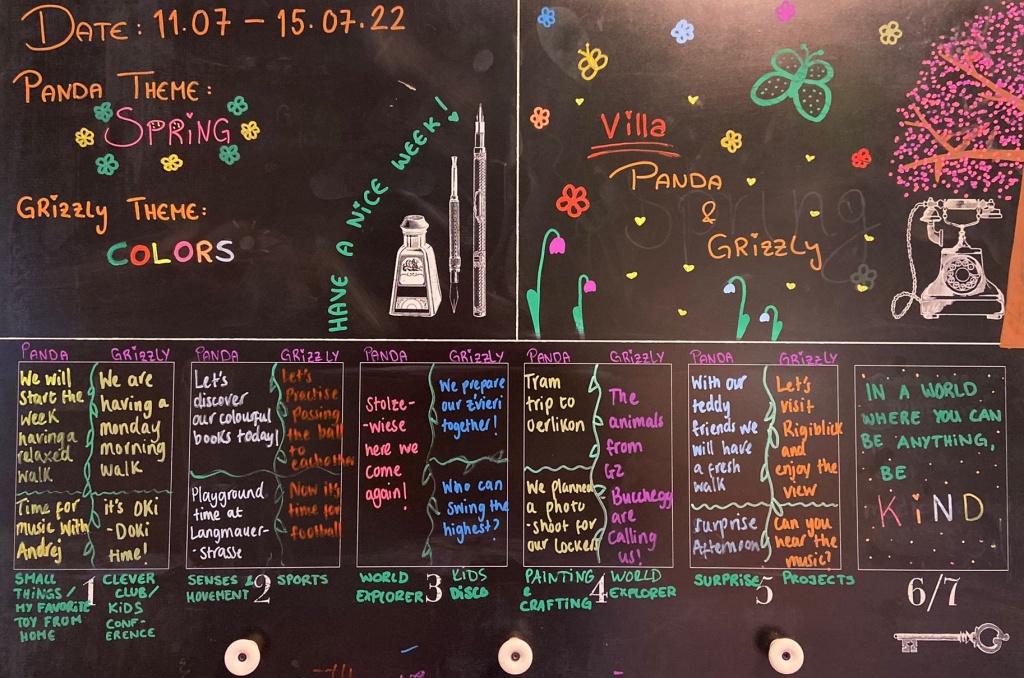 DATE: 11.07 – 15.07.22
PANDA THEME:
SPRING
GRIZZLY THEME:
COLORS
HAVE A NICE WEEK!
Villa
PANDA
&
GRIZZLY
Spring
PANDA GRIZZLY
We will
start the
week
having a
relaxed
walk
Time for
music with
Andrej
We are
having a
monday
morning
walk
it's OKI
-DOKI
time!
SMALL
THINGS/
MY FAVORITE
TOY FROM
HOME
1
CLEVER
CLUB/
KIDS
CONF-
ERENCE
PANDA GRIZZLY
Let's
discover
our colourful
books today!
Playground
time at
Langmauer-
-strasse
Let's
Practise
Passing
the ball
to
eachother
Now it's
time for
football
SENSES &
MOVEMENT
2
SPORTS
PANDA GRIZZLY
Stolze-
-wiese
here we
come
again!
We prepare
our zvieri
together!
Who can
swing the
highest?
WORLD
EXPLORER
3
KIDS
DISCO
PANDA GRIZZLY
Tram
trip to
Oerlikon
We planned
a photo
-shoot for
our Locker
The
animals
from
GZ
Buchegg
are
calling
us!
PAINTING
&
CRAFTING
4
WORLD
EXPLORER
PANDA GRIZZLY
With our
teddy
friends we
will have
a fresh
walk
Surprise
Afternoon
Let's
visit
Rigiblick
and
enjoy the
view
Can you
hear the
music?
SURPRISE
5
PROJECTS
IN A WORLD
WHERE YOU CAN
BE ANYTHING,
BE
KiND
6/7